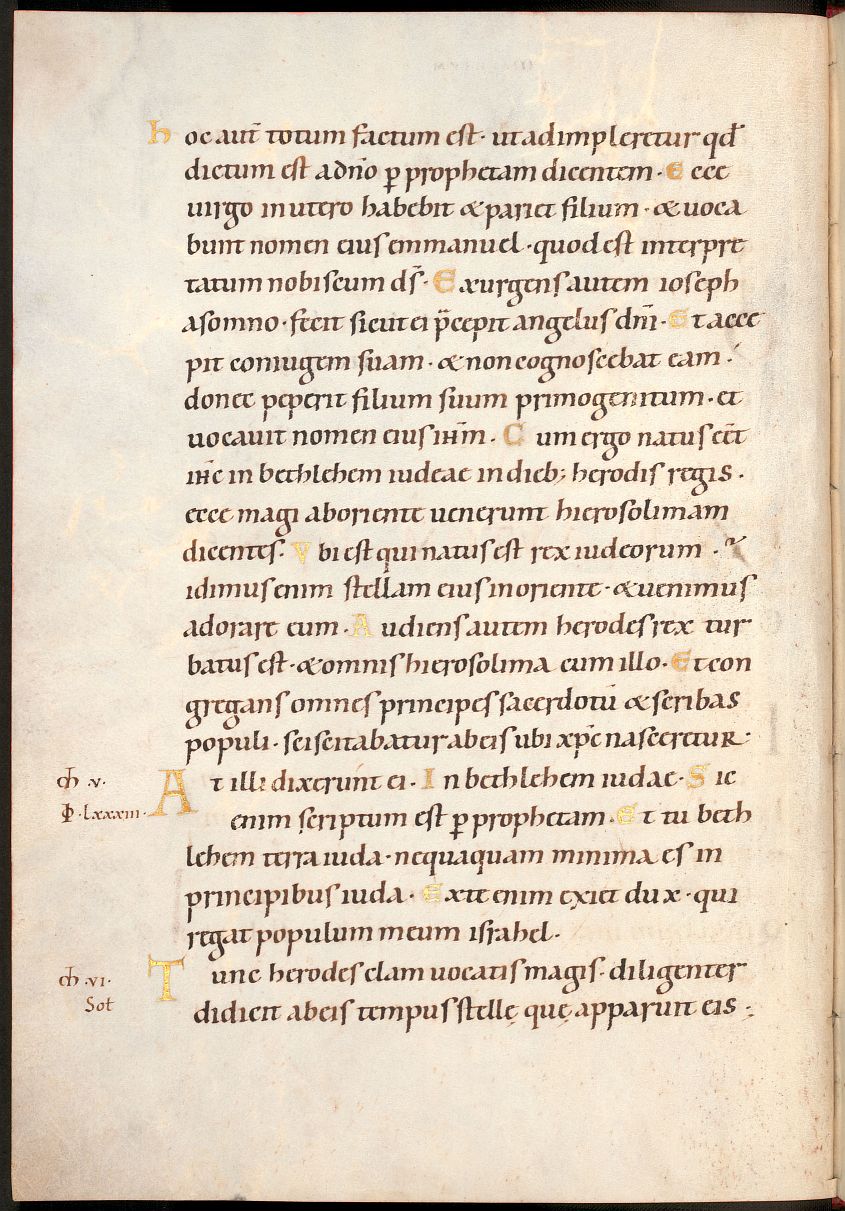 hoc aut̄ totum factum est· ut adimpleretur qđ
dictum est a dn̄o ꝑ prophetam dicentem· Ecce
uirgo in utero habebit & pariet filium· & uoca
bunt nomen eius emmanuel· quod est interpre
tatum nobiscum ds̄· Exurgens autem ioseph
a somno· fecit sicut ei p̄cepit angelus dn̄i· Et acce
pit coniugem suam· & non cognoscebat eam·
donec peperit filium suum primogenitum· et
uocauit nomen eius ihm̄· Cum ergo natus eēt
ihc̄ in bethlehem iudeae in dieb; herodis regis·
ecce magi ab oriente uenerunt hierosolimam
dicentes· Vbi est qui natus est rex iudeorum· V
idimus enim stellam eius in oriente· & uenimus
adorare eum· Audiens autem herodes rex tur
batus est· & omnis hierosolima cum illo· Et con
gregans omnes principes sacerdotū & scribas
populi· sciscitabatur ab eis ubi xp̄c nasceretur·
cħ ·v· At illi dixerunt ei· In bethlehem iudae· Sic
Φ·lxxxiii· enim scriptum est ꝑ prophetam· Et tu beth
lehem terra iuda· nequaquam minima es in
principibus iuda· Ex te enim exiet dux· qui
regat populum meum israhel·
cħ ·vi· Tunc herodes clam uocatis magis· diligenter
Sot didicit ab eis tempus stellę quę apparuit eis·